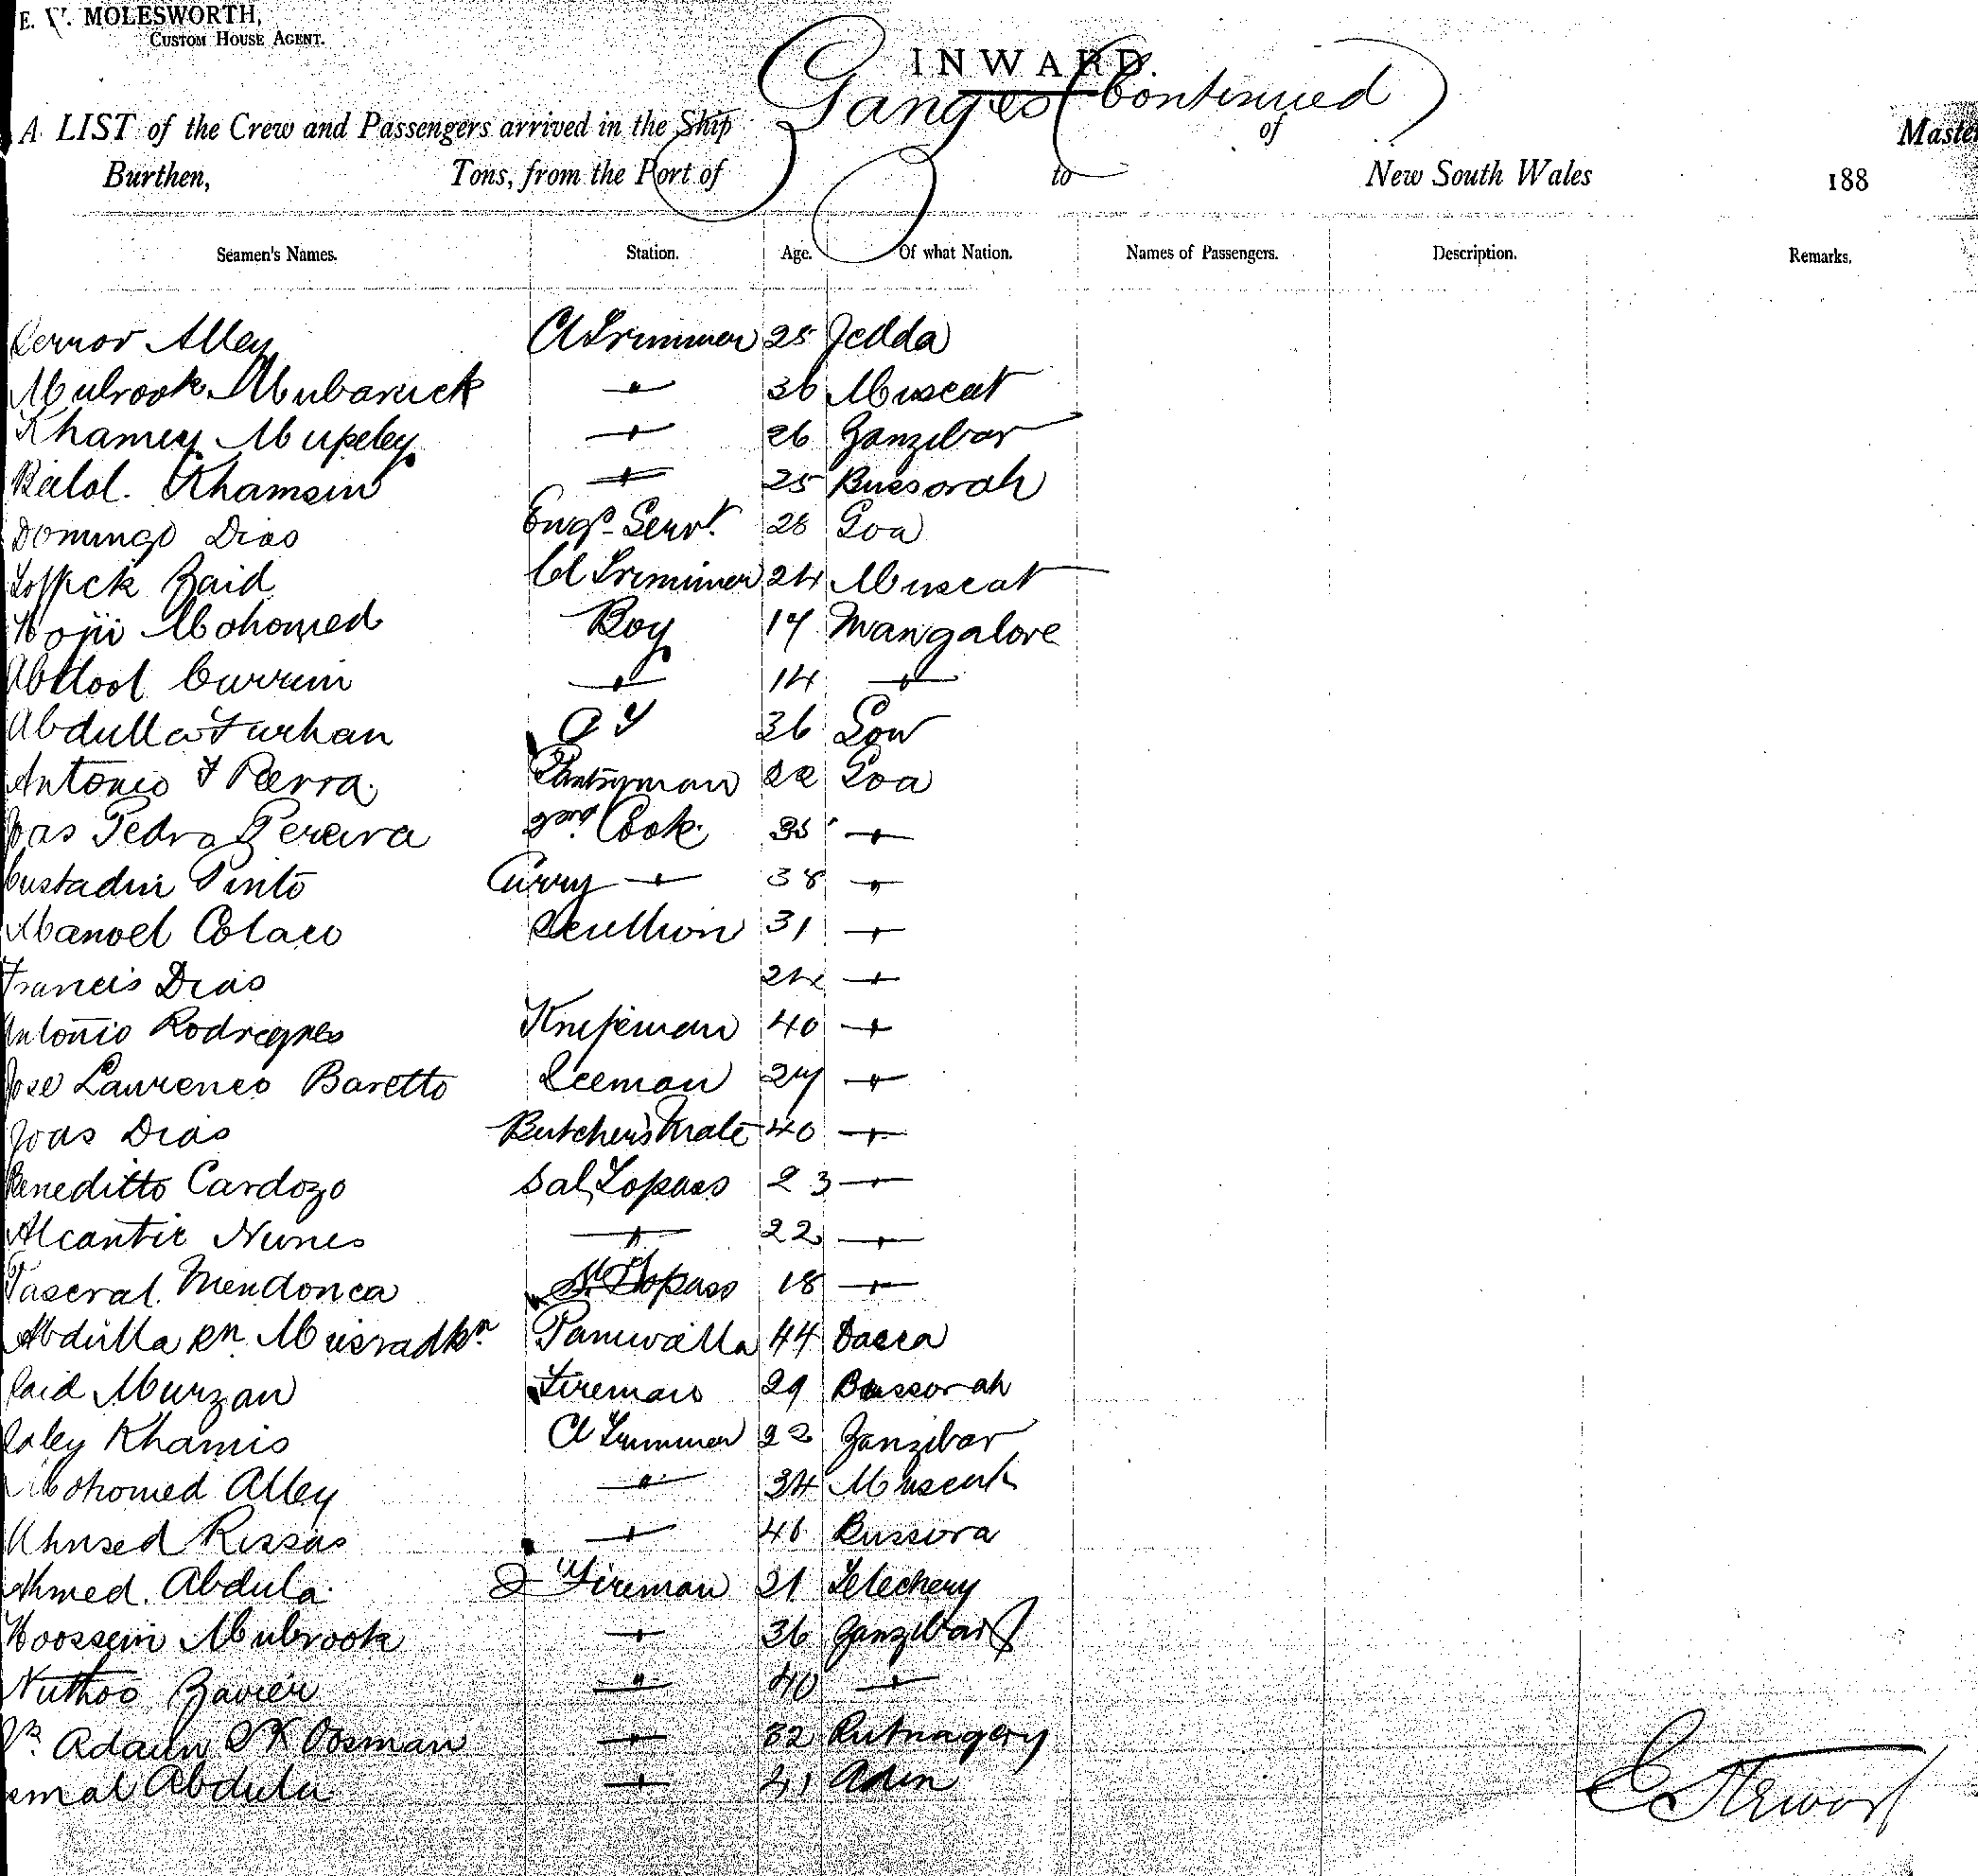 E. W. MOLESWORTH,
CUSTOM HOUSE AGENT.
INWARD.
Ganges (Continued)
A LIST of the Crew and Passengers arrived in the Ship of Master
Burthen, Tons, from the Port of to New South Wales 188
Seamen's Names. Station. Age. Of what Nation. Names of Passengers. Description. Remarks.
Alley Cl Trimmer 25 Jedda
Mubrook Mubaruck 〃 36 Muscat
Khamey 〃 26 Zanzibar
Belal. Khamsin 〃 25 Bussorah
Domingo Dias Engrs Servt 28 Goa
Zaid Cl Trimmer 24 Muscat
Mohomed Boy 17 Mangalore
Abdool Currim 〃 14 〃
Abdulla Furhan 36
Antonio F Pierra. Pantryman 22 Goa
Joas Pedro Pereira 2nd Cook 35 〃
Custadin Pinto Curry 〃 38 〃
Manoel Colaco Scullion 31 〃
Francis Dias 24 〃
Antonio Rodregues Knifeman 40 〃
Jose Laurenco Baretto Iceman 27 〃
Joas Dias Butcher's Mate 40 〃
Beneditto Cardozo Sal Topass 23 〃
Alcantir Nunes 〃 22 〃
Pascral Mendonca Topass 18 〃
Abdulla Paniwalla 44 Dacca
Said Murzan Fireman 29 Bussorah
Saley Khamis Cl Trimmer 22 Zanzibar
Mohomed Alley 〃 34 Muscat
Ahmed Rissas 〃 46 Bussora
Ahmed. Abdula Fireman 21 Telechery
Hoossein Mubrook 〃 36 Zanzibar
Nuthoo Zavier 〃 40 〃
Adam SK Oosman 〃 32 Rutnagery
Abdula 〃 41 Aden
C Stewart